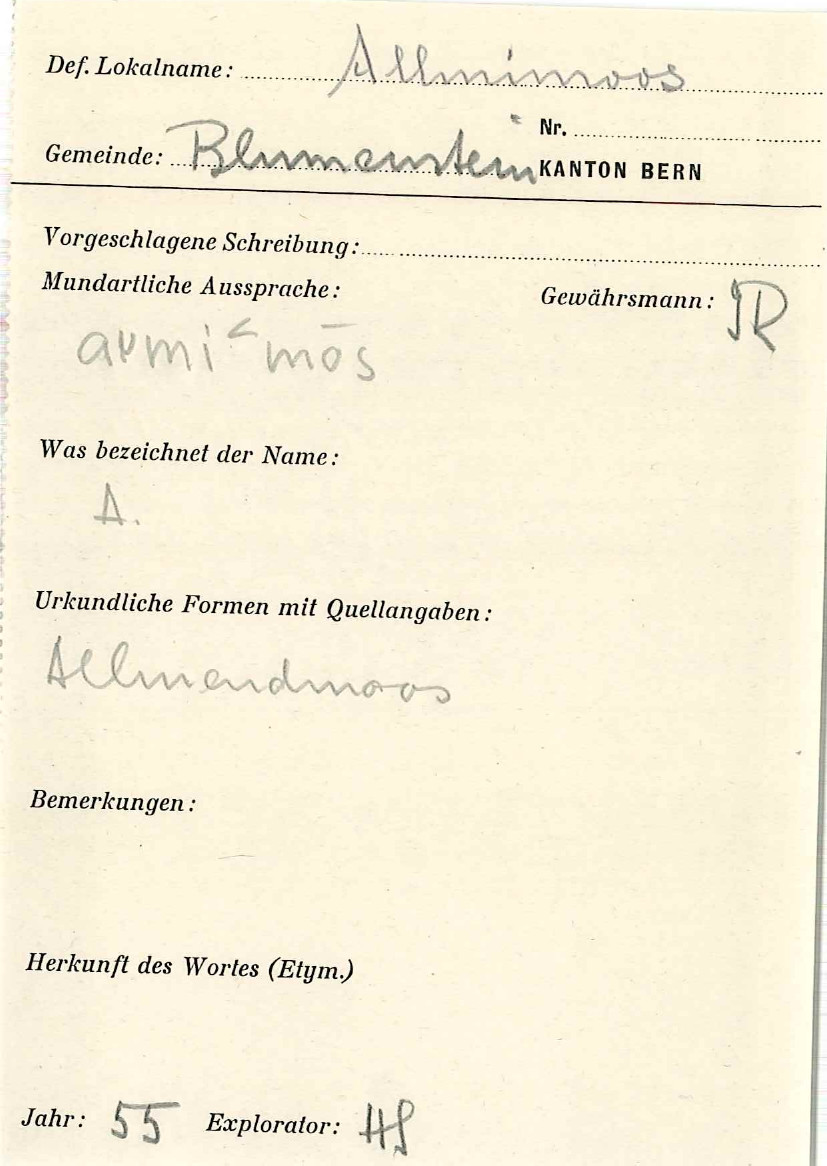 Def. Lokalname: Allmimoos
Nr.
Gemeinde: Blumenstein KANTON BERN
Vorgeschlagene Schreibung:
Mundartliche Aussprache:
Gewährsmann: JR
aʋmi˂mōs
Was bezeichnet der Name:
A.
Urkundliche Formen mit Quellangaben:
Allmendmoos
Bemerkungen:
Herkunft des Wortes (Etym.)
Jahr: 55 Explorator: HS